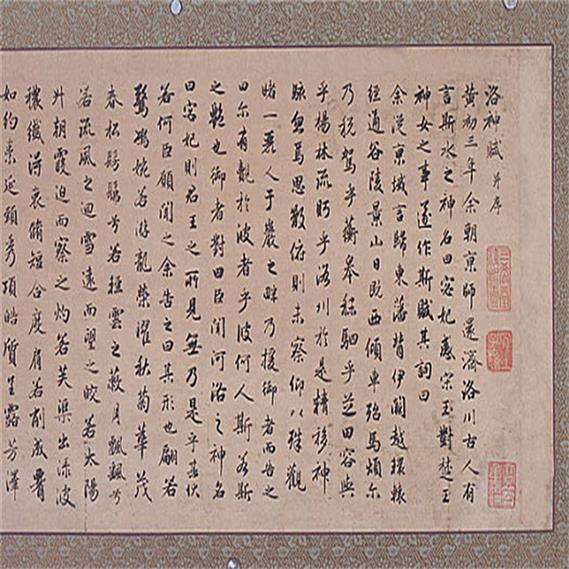 洛神賦 并序
黄初三年余朝京師還濟洛川古人有
言斯水之神名曰宓妃感宋玉對楚王
神女之事遂作斯賦其詞曰
余從京域言歸東藩背伊闕越轘轅
經通谷陵景山日既西傾車殆馬煩尔
乃税駕乎蘅皋秣駟乎芝田容與
乎楊林流眄乎洛川於是精移神
駭忽焉思散俯則未察仰以殊觀
睹一麗人于巖之畔乃援御者而告之
曰尔有覿於彼者乎彼何人斯若斯
之艷也御者對曰臣聞河洛之神名
曰宓妃則君王之所見無乃是乎其狀
若何臣願聞之余告之曰其形也翩若
驚鴻婉若游龍榮曜秋菊華茂
春松髣髴兮若輕雲之蔽月飄飄兮
若流風之迴雪遠而望之皎若太陽
升朝霞迫而察之灼若芙蕖出淥波
穠纖得衷脩短合度肩若削成腰
如約素延頸秀項皓質呈露芳澤